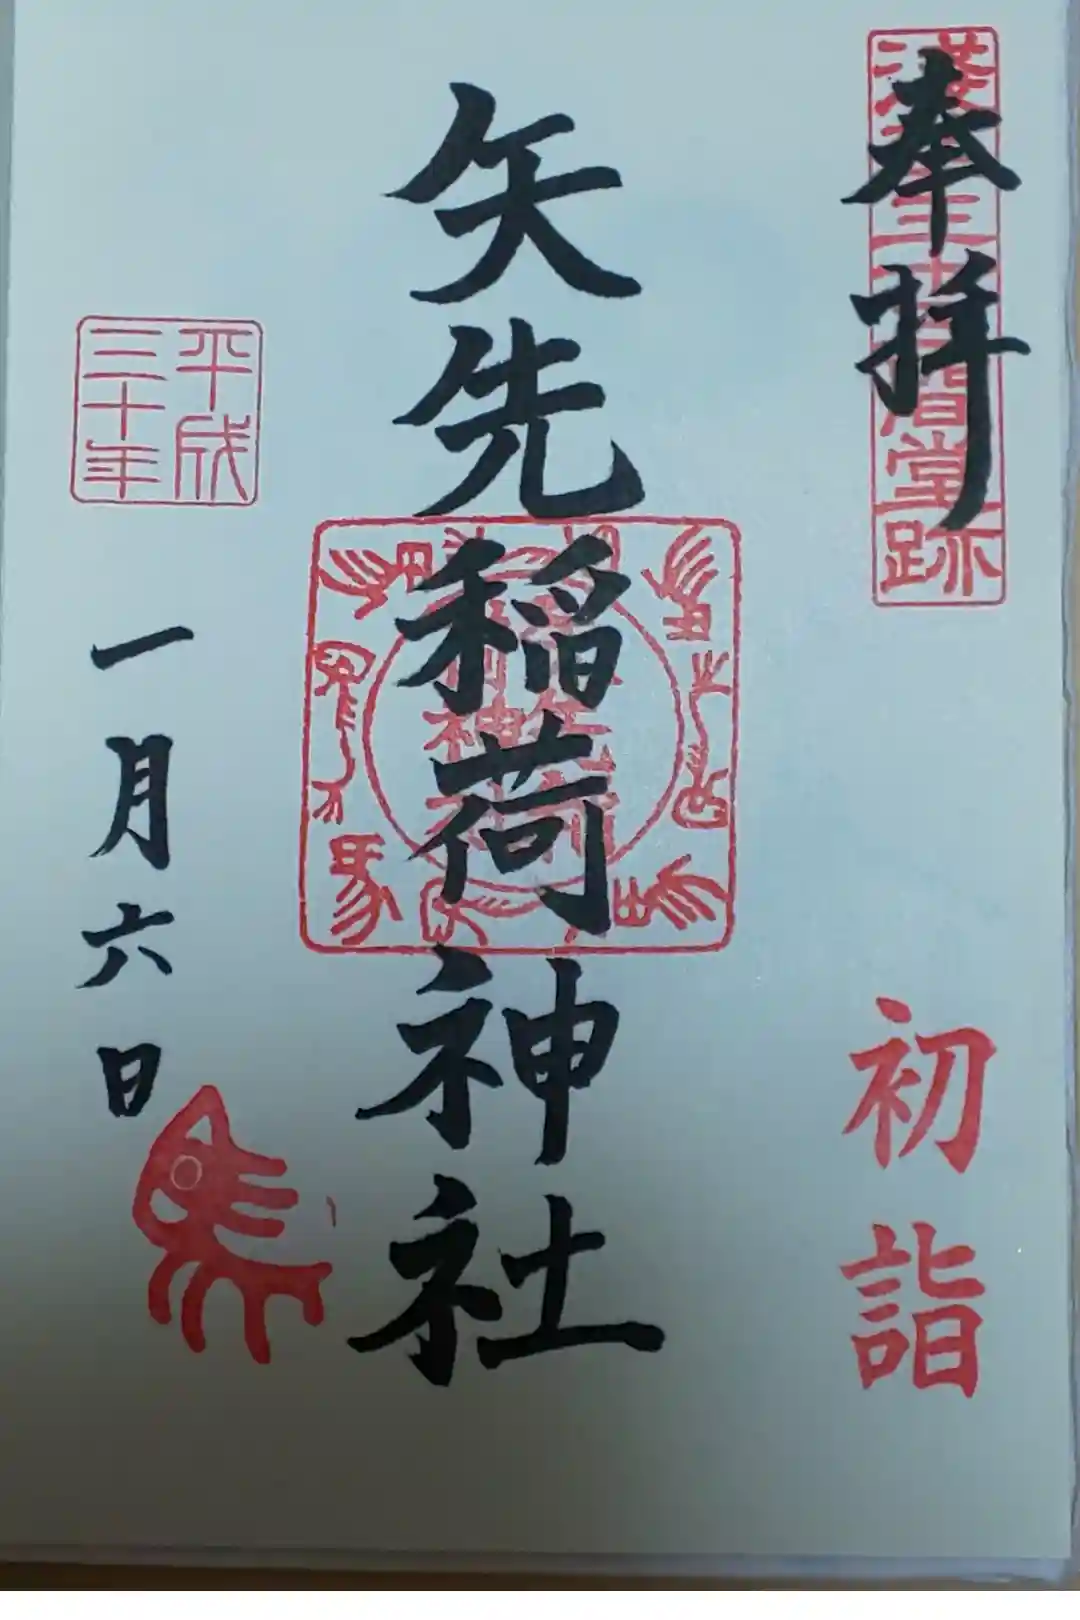 奉拝
浅草三十三間堂跡
初詣
矢先稲荷神社
平成
三十年
一月六日